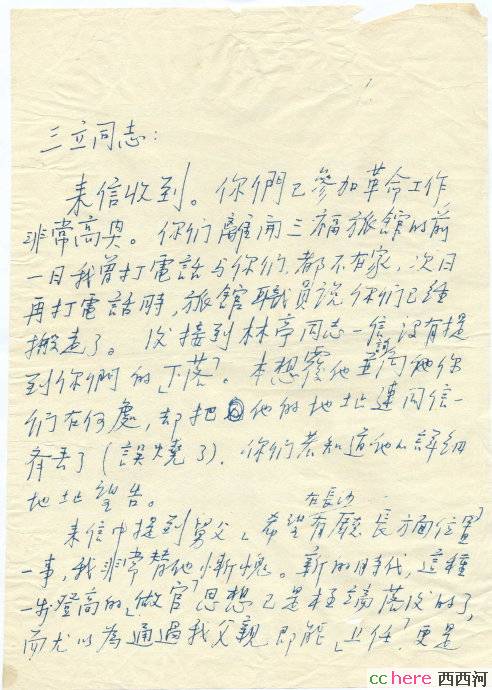 三立同志：
来信收到。你們已參加革命工作
非常高興。你们離開三福旅館的前
一日我曾打電話与你们，都不在家，次日
再打電話時，旅館職員說你们已經
搬走了。後接到林亭同志一信沒有提
到你們的「下落」。本想覆他並詢他你
们在何處，却把他的地址連同信一
齊丟了（誤燒了）。你们若知道他的詳細
地址望告。
來信中提到舅父「希望在長沙有廳長方面位置」
一事，我非常替他慚愧。新的時代，這種
一步登高的「做官」思想已是極端落後的了，
而尤以為通過我父親即能「上任」，更是
cchere 西西河